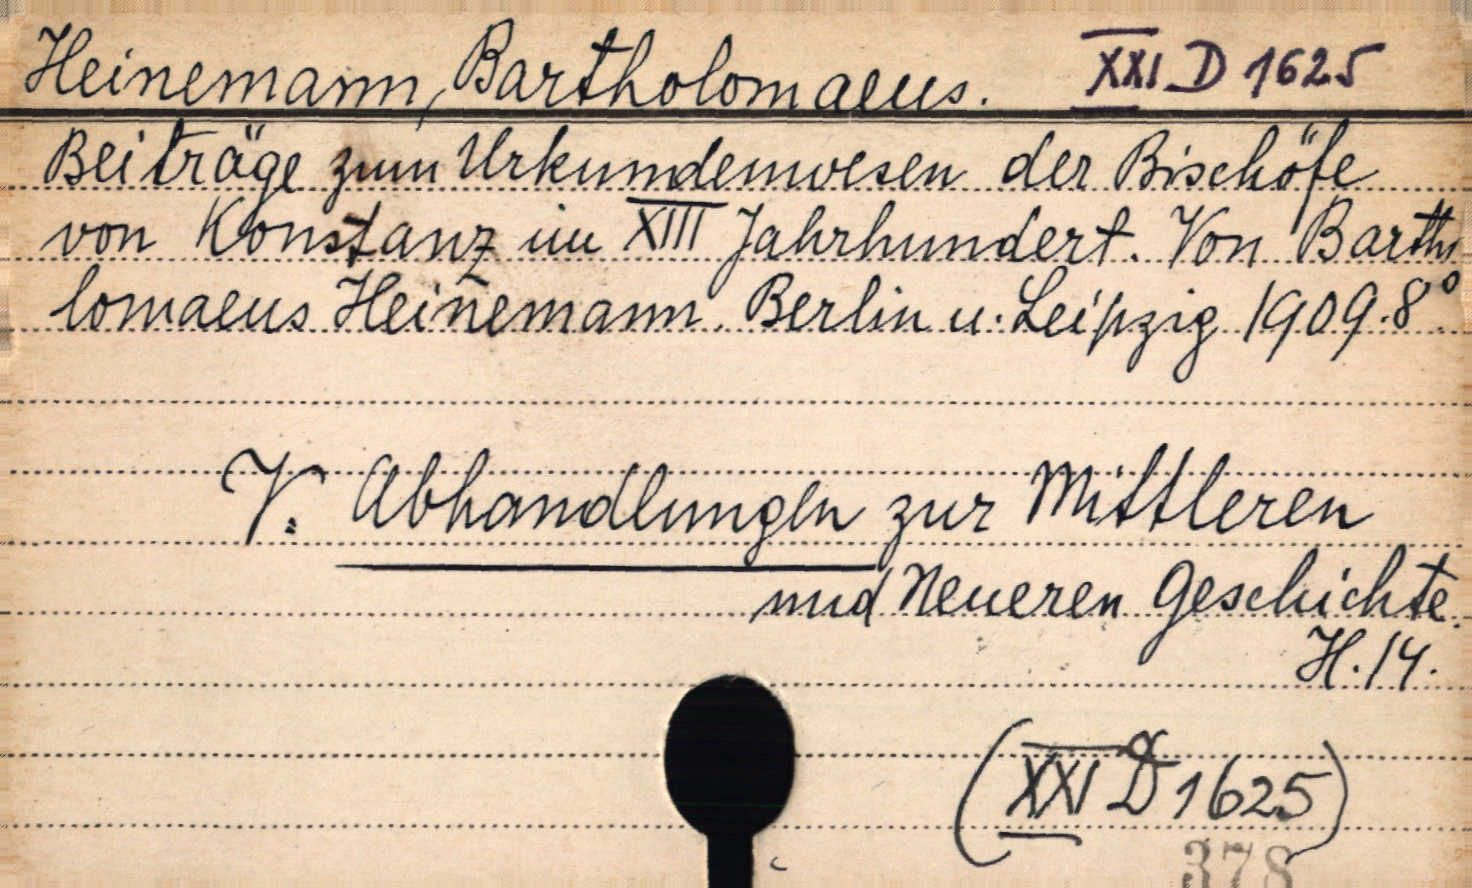 Heinemann, Bartholomaeus. XXI D 1625
Beiträge zum Urkundenwesen der Bischöfe
von Konstanz im XIII Jahrhundert. Von Bartho
lomaeus Heinemann. Berlin u. Leipzig 1909. 8°.
V. Abhandlungen zur Mittleren
und Neueren Geschichte.
H. 14.
(XXI D 1625)
378